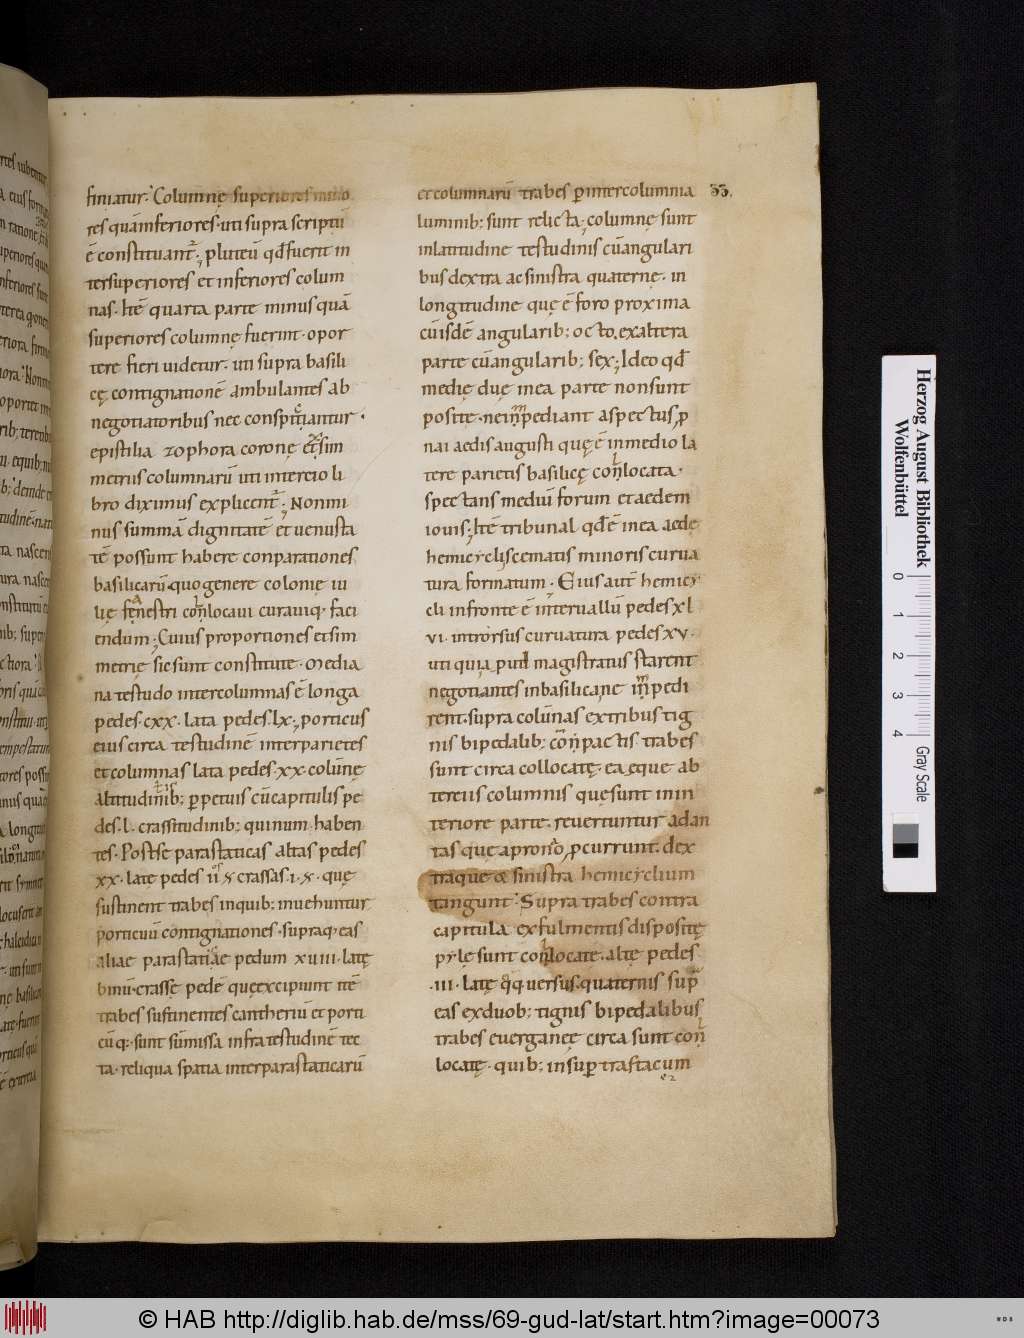 finiatur. Columnę superiores mino
res quā inferiores. uti supra scriptū
ē constituant᷑. pluteū qđ fuerit in
ter superiores et inferiores colum
nas. Itē quarta parte minus quā
superiores columnę fuerint. opor
tere fieri uidetur. uti supra basili
cę contignationē ambulantes ab
negotiatoribus nec conspitiantur.
epistilia zophora coronę et sim
metriis columnarū uti intercio li
bro diximus explicent᷑. Non mi
nus summā dignitatē et uenusta
tē possunt habere conparationes
basilicarū quo genere colonię iu
lię fanestri conlocaui curauiq; faci
endum. Cuius proportiones et sim
metrię sic sunt constitutę. Media
na testudo inter columnas ē longa
pedes. cxx. lata pedes. lx. porticus
eius circa testudinē inter parietes
et columnas lata pedes. xx. colūnę
altitudinib; perpetuis cū capitulis pe
des. l. crassitudinib; quinum. haben
tes. Post se parastaticas altas pedes
xx. latę pedes ii crassas. i. quę
sustinent trabes inquib; inuehuntur
porticuū contignationes. supraq; eas
aliae parastaticae pedum xuiii. latę
binū. crassę pedē quę excipiunt itē
trabes sustinentes cantheriū et porti
cūq;. sunt sūmissa infra testudinē tec
ta. reliqua spatia inter parastaticarū
et columnarū trabes p intercolumnia 33.
luminib; sunt relicta. columnę sunt
in latitudine testudinis cū angulari
bus dextra ac sinistra quaternę. in
longitudine quę ē foro proxima
cū isdē angularib; octo. ex altera
parte cū angularib; sex. Ideo qđ
medię duę in ea parte non sunt
positę. ne impediant aspectus p
nai aedis augusti quę ē in medio la
tere parietis basilicę conlocata.
spectans mediū forum et aedem
iouis. Itē tribunal qđ ē in ea aede
hemicyclii scematis minoris curua
tura formatum. Eius aut̄ hemicy
cli in fronte ē interuallū pedes xl
vi. introrsus curuatura pedes xv.
uti qui apud magistratus starent
negotiantes in basilica. ne impedi
rent. supra colūnas ex tribus tig
nis bipedalib; conpactis. trabes
sunt circa collocatę. eaeque ab
terciis columnis quę sunt in in
teriore parte. reuertuntur ad an
tas quę a pronao pcurrunt. dex
traque & sinistra hemicyclium
tingunt. Supra trabes contra
capitula ex fulmentis dispositę
pylę sunt conlocatę. altę pedes
.iii. latę quoquersus. quaternis sup
eas ex duob; tignis bipedalibus
trabes euerganeę circa sunt con
locatę. quib; insup trastacum